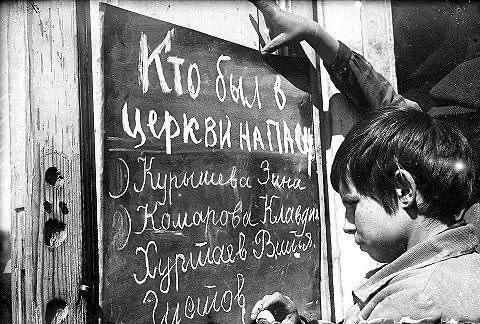 Кто был в
церкви на пасху
1) Курышева Зина
2) Комарова Клавдия
Хуртаев Витья.
Густов